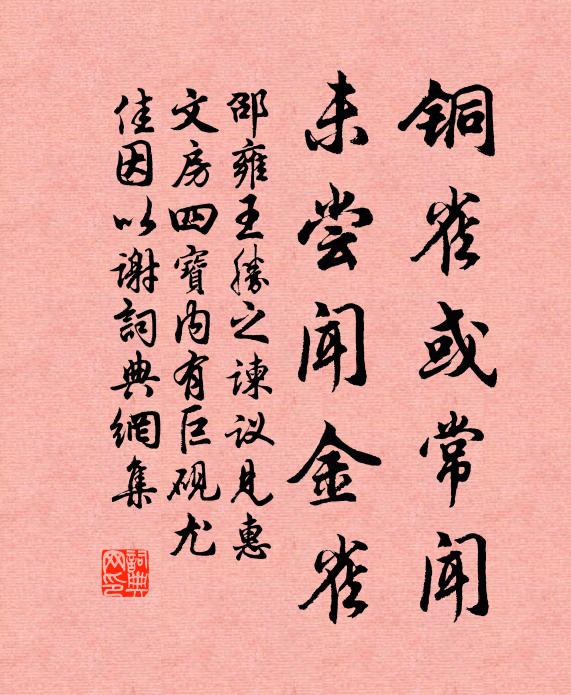 铜雀或常闻
未尝闻金雀
邵雍王勝之谏议見惠
文房四寶内有巨砚尤
佳因以谢詞典網集
詞典网印